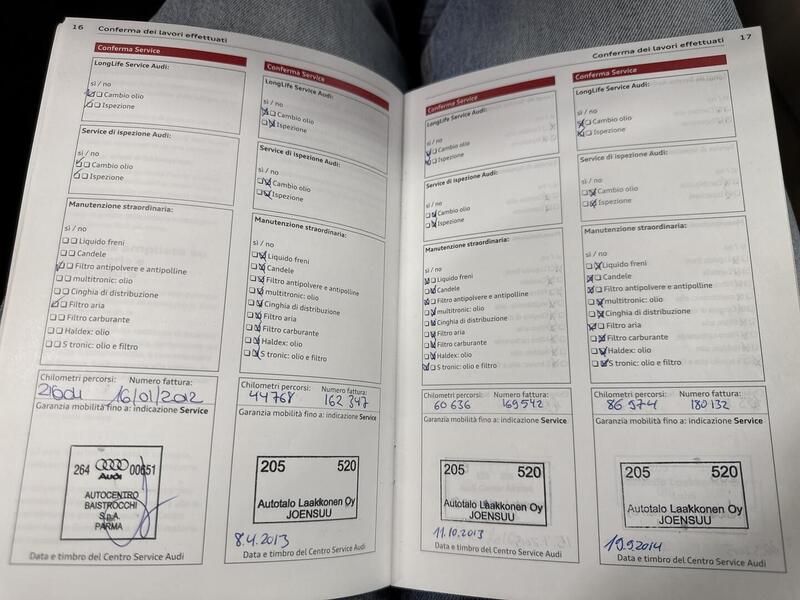 16 Conferma dei lavori effettuati
Conferma Service
LongLife Service Audi:
sì / no
Cambio olio
Ispezione
Service di ispezione Audi:
sì / no
Cambio olio
Ispezione
Manutenzione straordinaria:
sì / no
Liquido freni
Candele
Filtro antipolvere e antipolline
multitronic: olio
Cinghia di distribuzione
Filtro aria
Filtro carburante
Haldex: olio
S tronic: olio e filtro
Chilometri percorsi: Numero fattura:
16/01/2012
Garanzia mobilità fino a: indicazione Service
264 Audi 00651
AUTOCENTRO
BAISTROCCHI
S.p.A.
PARMA
Data e timbro del Centro Service Audi
Conferma Service
LongLife Service Audi:
sì / no
Cambio olio
Ispezione
Service di ispezione Audi:
sì / no
Cambio olio
Ispezione
Manutenzione straordinaria:
sì / no
Liquido freni
Candele
Filtro antipolvere e antipolline
multitronic: olio
Cinghia di distribuzione
Filtro aria
Filtro carburante
Haldex: olio
S tronic: olio e filtro
Chilometri percorsi: Numero fattura:
44768 162 347
Garanzia mobilità fino a: indicazione Service
205 520
Autotalo Laakkonen Oy
JOENSUU
8.4.2013
Data e timbro del Centro Service Audi
Conferma dei lavori effettuati 17
Conferma Service
LongLife Service Audi:
sì / no
Cambio olio
Ispezione
Service di ispezione Audi:
sì / no
Cambio olio
Ispezione
Manutenzione straordinaria:
sì / no
Liquido freni
Candele
Filtro antipolvere e antipolline
multitronic: olio
Cinghia di distribuzione
Filtro aria
Filtro carburante
Haldex: olio
S tronic: olio e filtro
Chilometri percorsi: Numero fattura:
60 636 169 542
Garanzia mobilità fino a: indicazione Service
205 520
Autotalo Laakkonen Oy
JOENSUU
11.10.2013
Data e timbro del Centro Service Audi
Conferma Service
LongLife Service Audi:
sì / no
Cambio olio
Ispezione
Service di ispezione Audi:
sì / no
Cambio olio
Ispezione
Manutenzione straordinaria:
sì / no
Liquido freni
Candele
Filtro antipolvere e antipolline
multitronic: olio
Cinghia di distribuzione
Filtro aria
Filtro carburante
Haldex: olio
S tronic: olio e filtro
Chilometri percorsi: Numero fattura:
86 974 180 132
Garanzia mobilità fino a: indicazione Service
205 520
Autotalo Laakkonen Oy
JOENSUU
19.9.2014
Data e timbro del Centro Service Audi